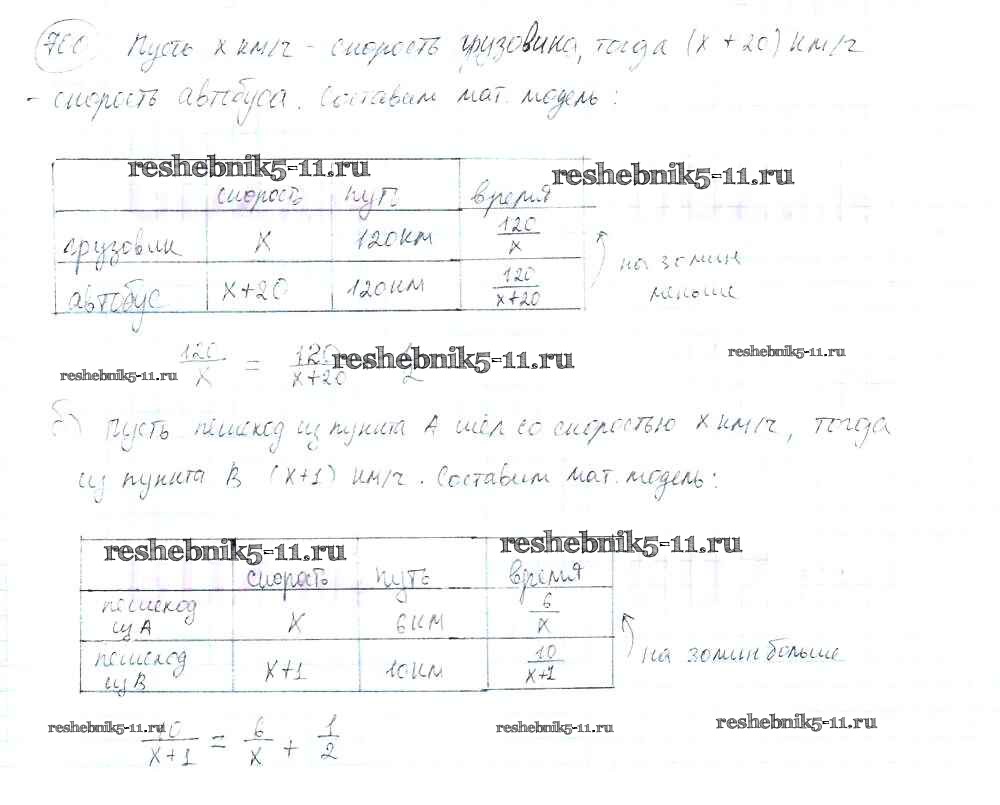 Пусть x км/ч - скорость грузовика, тогда (x + 20) км/ч
- скорость автобуса. Составим мат. модель:
reshebnik5-11.ru
reshebnik5-11.ru
скорость путь время
грузовик x 120км 120/x
автобус x+20 120км 120/(x+20)
на 30мин
меньше
120/x = 120/(x+20) 1/2
reshebnik5-11.ru
reshebnik5-11.ru
reshebnik5-11.ru
б) Пусть пешеход из пункта A шёл со скоростью x км/ч, тогда
из пункта B (x+1) км/ч. Составим мат. модель:
reshebnik5-11.ru
reshebnik5-11.ru
скорость путь время
пешеход из A x 6км 6/x
пешеход из B x+1 10км 10/(x+1)
на 30мин больше
10/(x+1) = 6/x + 1/2
reshebnik5-11.ru
reshebnik5-11.ru
reshebnik5-11.ru